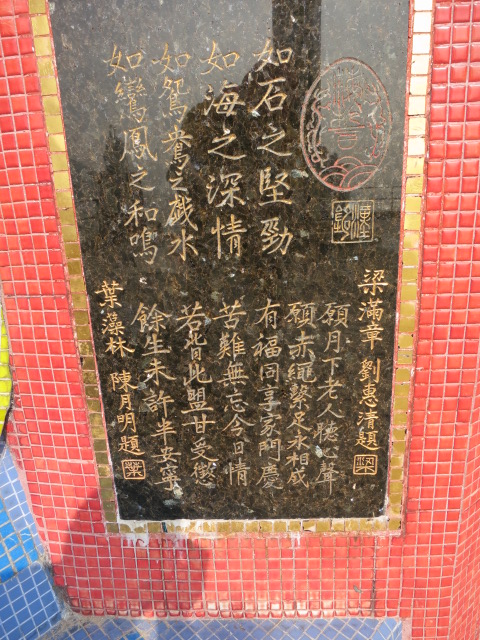 如石之堅勁
如海之深情
如鴛鴦之戲水
如鸞鳳之和鳴
梁滿章 劉惠清題
願月下老人聽心聲
願赤繩繫足永相成
有福同享家門慶
苦難無忘今日情
若背此盟甘受懲
餘生未許半安寧
葉藻林 陳月明題